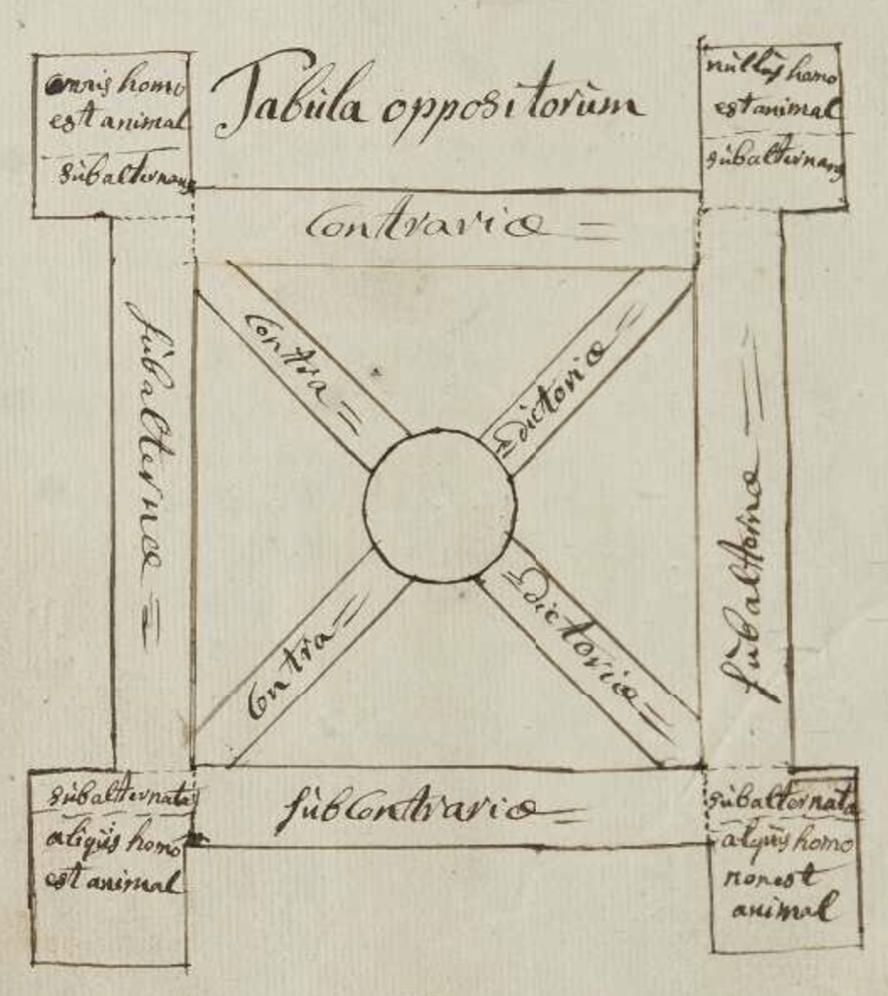 Tabula oppositorum
omnis homo
est animal
subalternans
nullus homo
est animal
subalternans
Contrariæ =
Contra =
=dictoriæ =
subalternæ =
subalternæ =
Contra =
=dictoriæ =
subcontrariæ =
subalternata
aliquis homo
est animal
subalternata
alquis homo
non est
animal